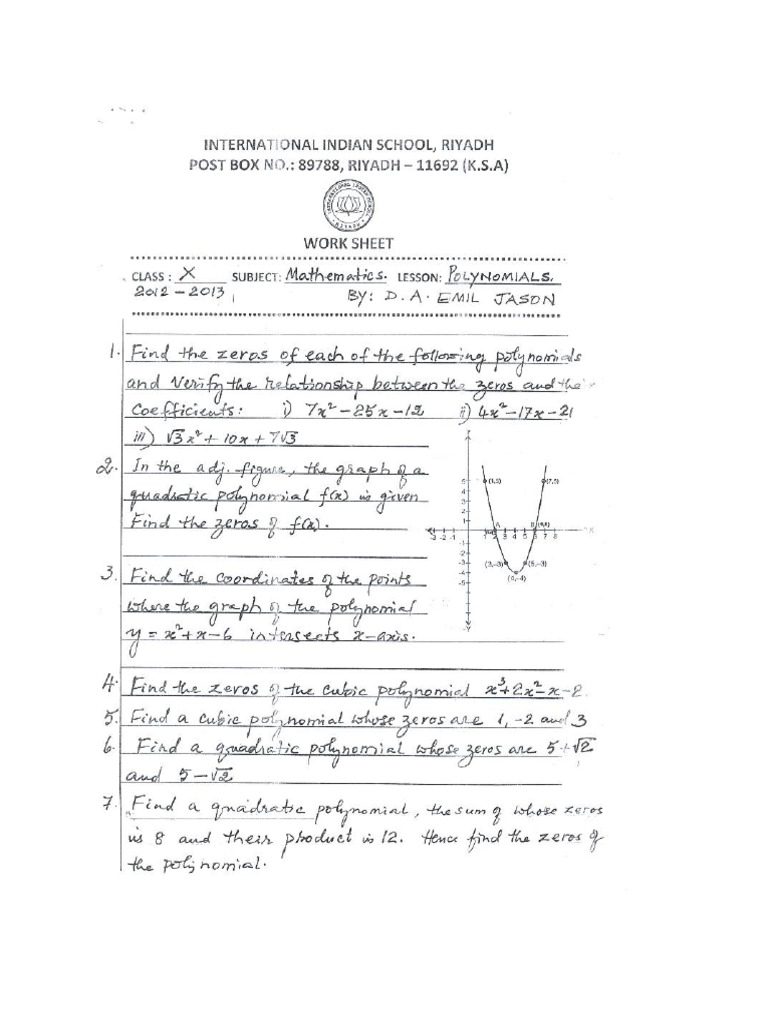 INTERNATIONAL INDIAN SCHOOL, RIYADH
POST BOX NO.: 89788, RIYADH – 11692 (K.S.A)
WORK SHEET
CLASS : X SUBJECT: Mathematics. LESSON: POLYNOMIALS.
2012 – 2013 BY: D. A. EMIL JASON
1. Find the zeros of each of the following polynomials
and Verify the relationship between the zeros and the
Coefficients: i) 7x² – 25x – 12 ii) 4x² – 17x – 21
iii) √3x² + 10x + 7√3
2. In the adj. figure, the graph of a
quadratic polynomial f(x) is given
Find the zeros of f(x).
3. Find the coordinates of the points
where the graph of the polynomial
y = x² + x – 6 intersects x-axis.
4. Find the zeros of the cubic polynomial x³+2x²–x–2.
5. Find a cubic polynomial whose zeros are 1, -2 and 3
6. Find a quadratic polynomial whose zeros are 5+√2
and 5–√2
7. Find a quadratic polynomial, the sum of whose zeros
is 8 and their product is 12. Hence find the zeros of
the polynomial.
(7,5)
A B
(3,–3) (5,–3)
(4,–4)